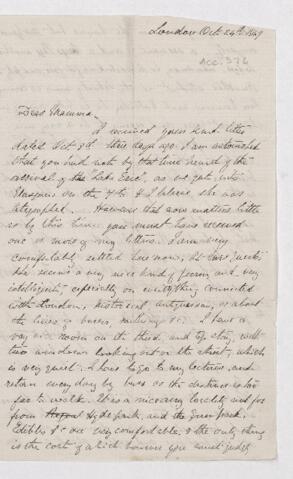 London Oct. 24th 18
Acc. 376
Dear Mamma,
I received your kind letter
dated Oct 8th three days ago. I am astonished
that you had not by that time heard of the
arrival of the "Lake Erie", as we got into
Glasgow on the 7th & I believe she was
telegraphed. However that now matters little
as by this time you must have received
one or more of my letters. I am very
comfortably settled here now,
She seems a very nice kind of person and very
intelligent, especially on everything connected
with London, historical, antiquarian, or about
the lines of buses, railways &c. I have a
room on the third story, with
two windows looking out on the street, which
is very quiet. I have to go to my lectures, and
return every day by bus as the distance is too
far to walk. It is a nice airy locality not far
from Hyde Park, and the Green Park.
Edibles &c are very comfortable, & the only thing
is the cost of which however you must judge